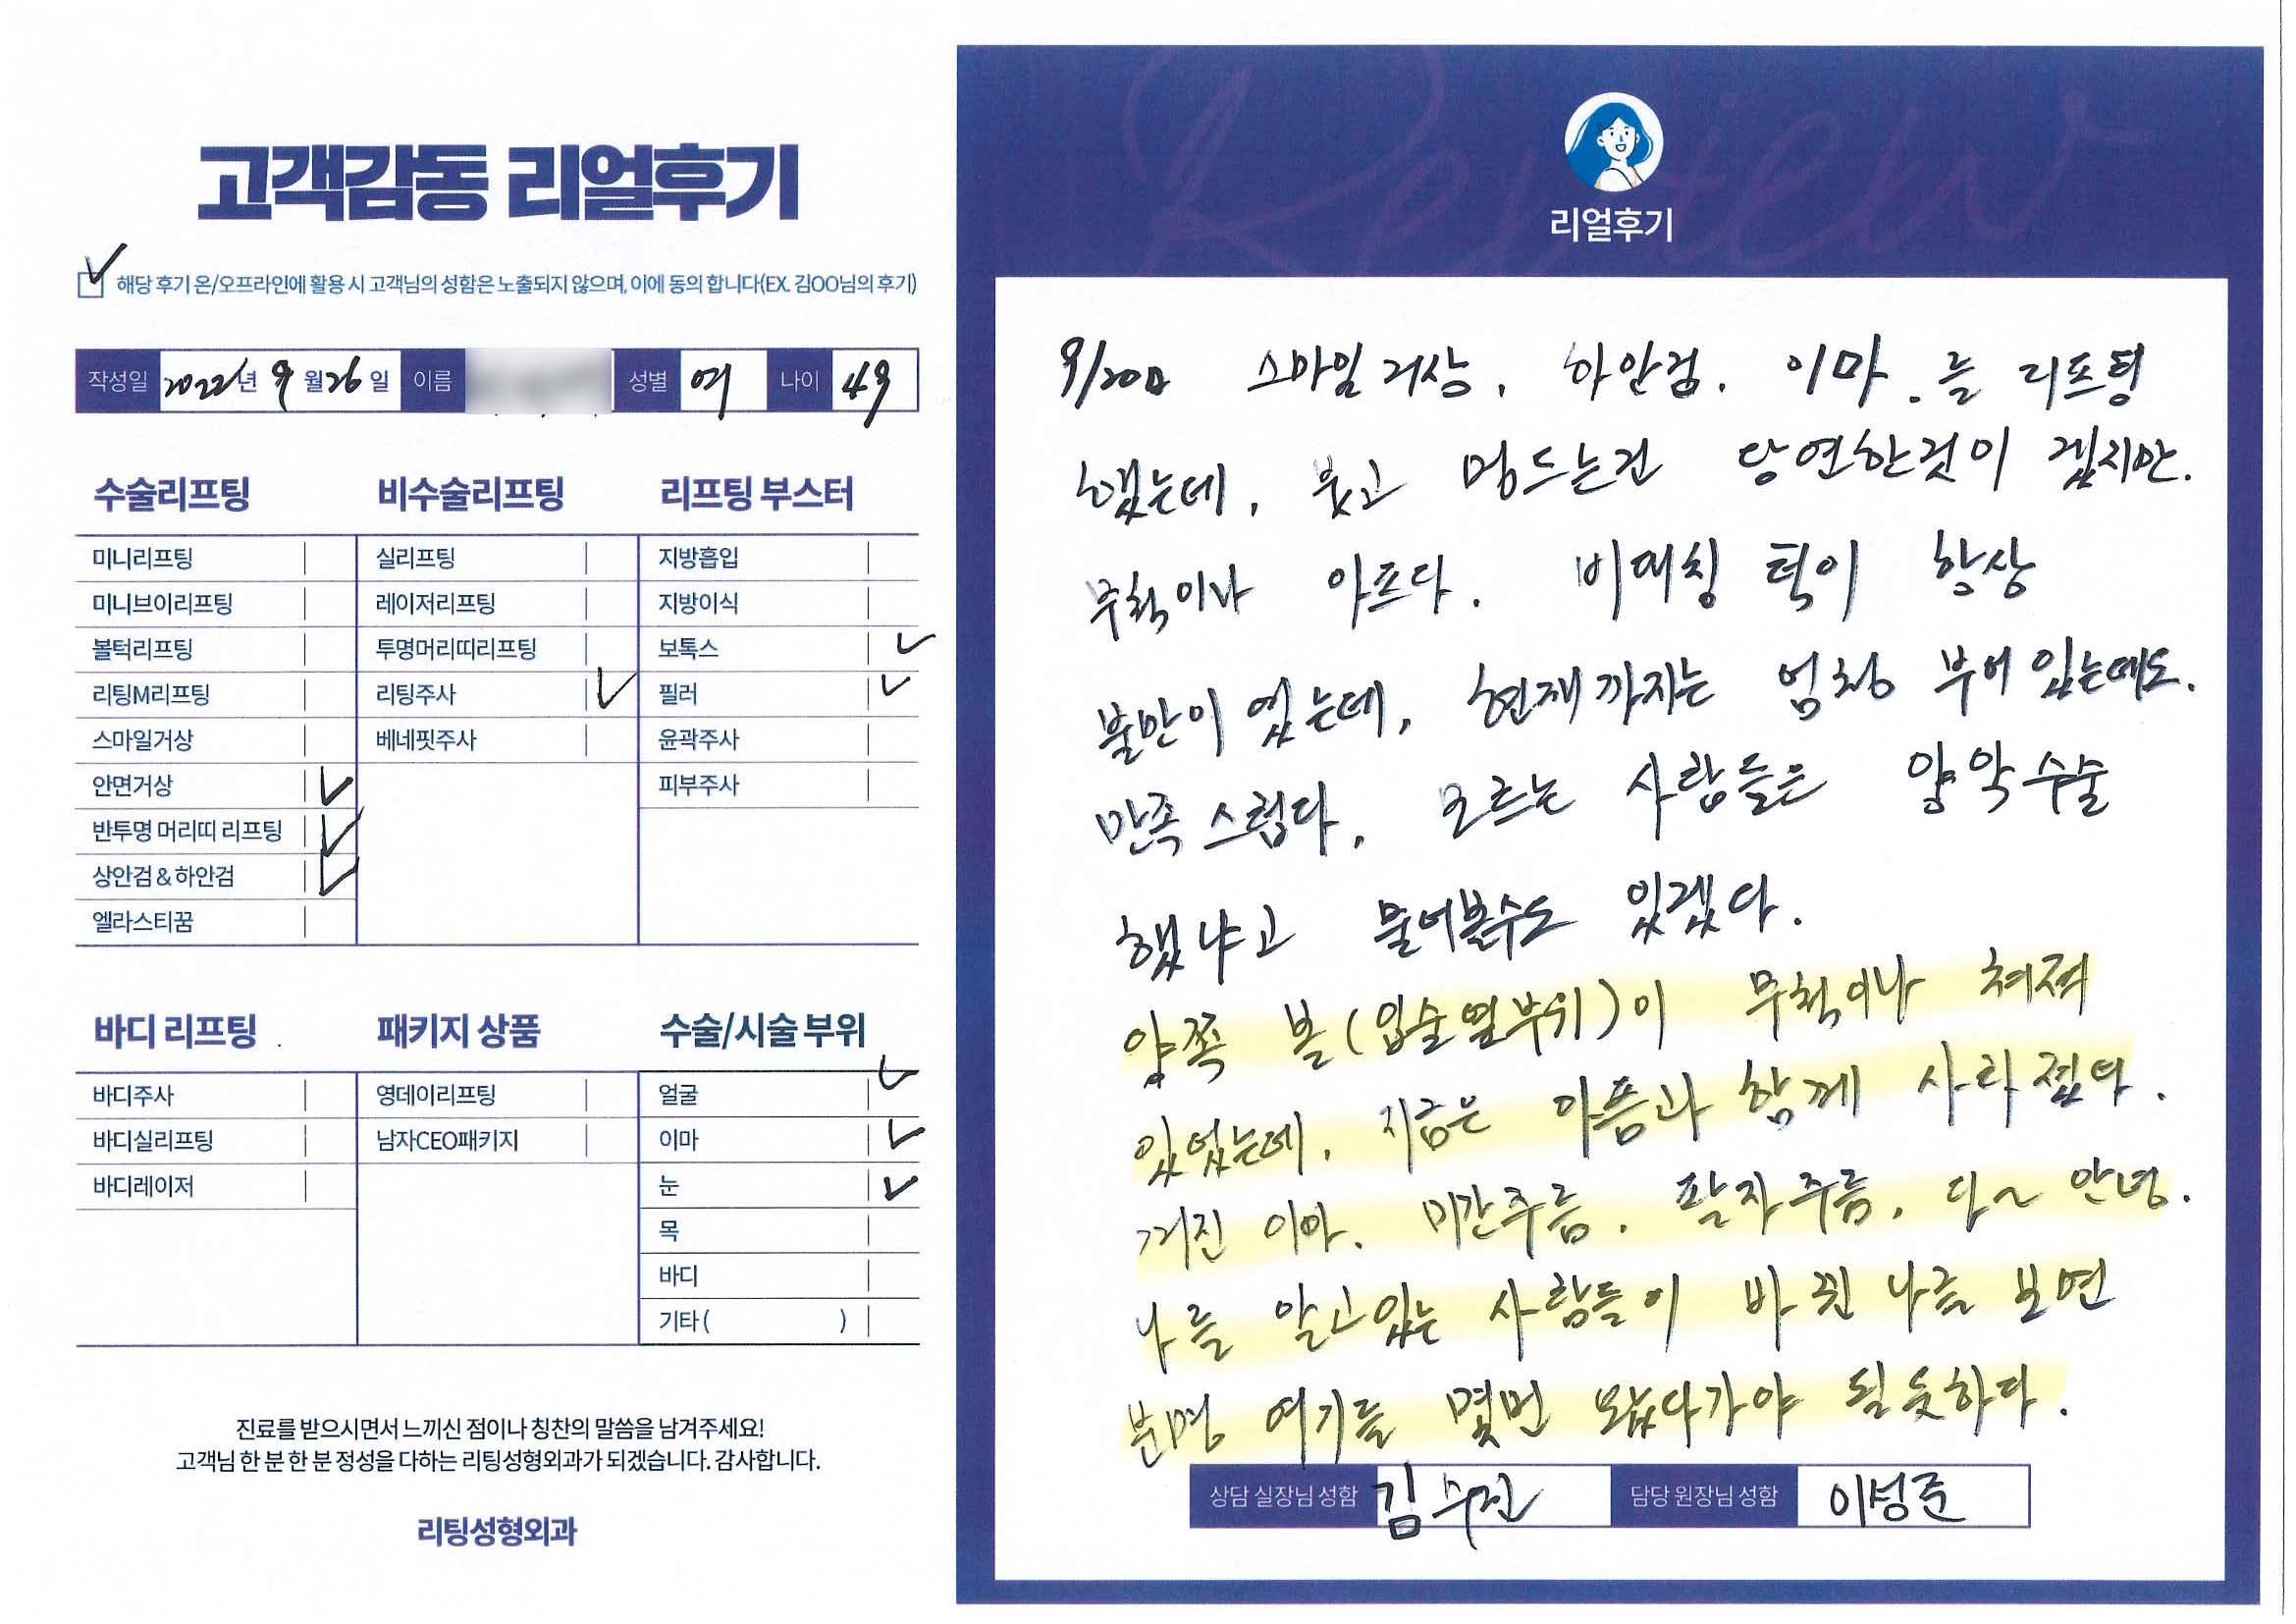 고객감동 리얼후기
해당 후기 온/오프라인에 활용 시 고객님의 성함은 노출되지 않으며, 이에 동의 합니다(EX. 김OO님의 후기)
작성일 2022년 9월 26일 이름 성별 여 나이 49
수술리프팅
미니리프팅
미니브이리프팅
볼턱리프팅
리팅M리프팅
스마일거상
안면거상
반투명 머리띠 리프팅
상안검 & 하안검
엘라스티꿈
비수술리프팅
실리프팅
레이저리프팅
투명머리띠리프팅
리팅주사
베네핏주사
리프팅 부스터
지방흡입
지방이식
보톡스
필러
윤곽주사
피부주사
바디 리프팅
바디주사
바디실리프팅
바디레이저
패키지 상품
영데이리프팅
남자CEO패키지
수술/시술 부위
얼굴
이마
눈
목
바디
기타 ( )
진료를 받으시면서 느끼신 점이나 칭찬의 말씀을 남겨주세요!
고객님 한 분 한 분 정성을 다하는 리팅성형외과가 되겠습니다. 감사합니다.
리팅성형외과
Review
리얼후기
스마일거상, 하안검. 이마.를 리프팅
했는데, 붓고 멍드는건 당연한것이 겠지만.
무척이나 아프다. 비대칭 턱이 항상
불만이 었는데, 현재까지는 엄청 부어있는데도.
만족스럽다. 모르는 사람들은 양악수술
했냐고 물어볼수도 있겠다.
양쪽 볼(입술옆부위)이 무척이나 쳐져
있었는데, 지금은 아픔과 함께 사라졌다.
꺼진 이마. 미간주름. 팔자주름, 다~ 안녕.
나를 알고있는 사람들이 바뀐 나를 보면
분명 여기를 몇번 왔다가야 될듯하다.
상담 실장님 성함 김수진 담당 원장님 성함 이성준